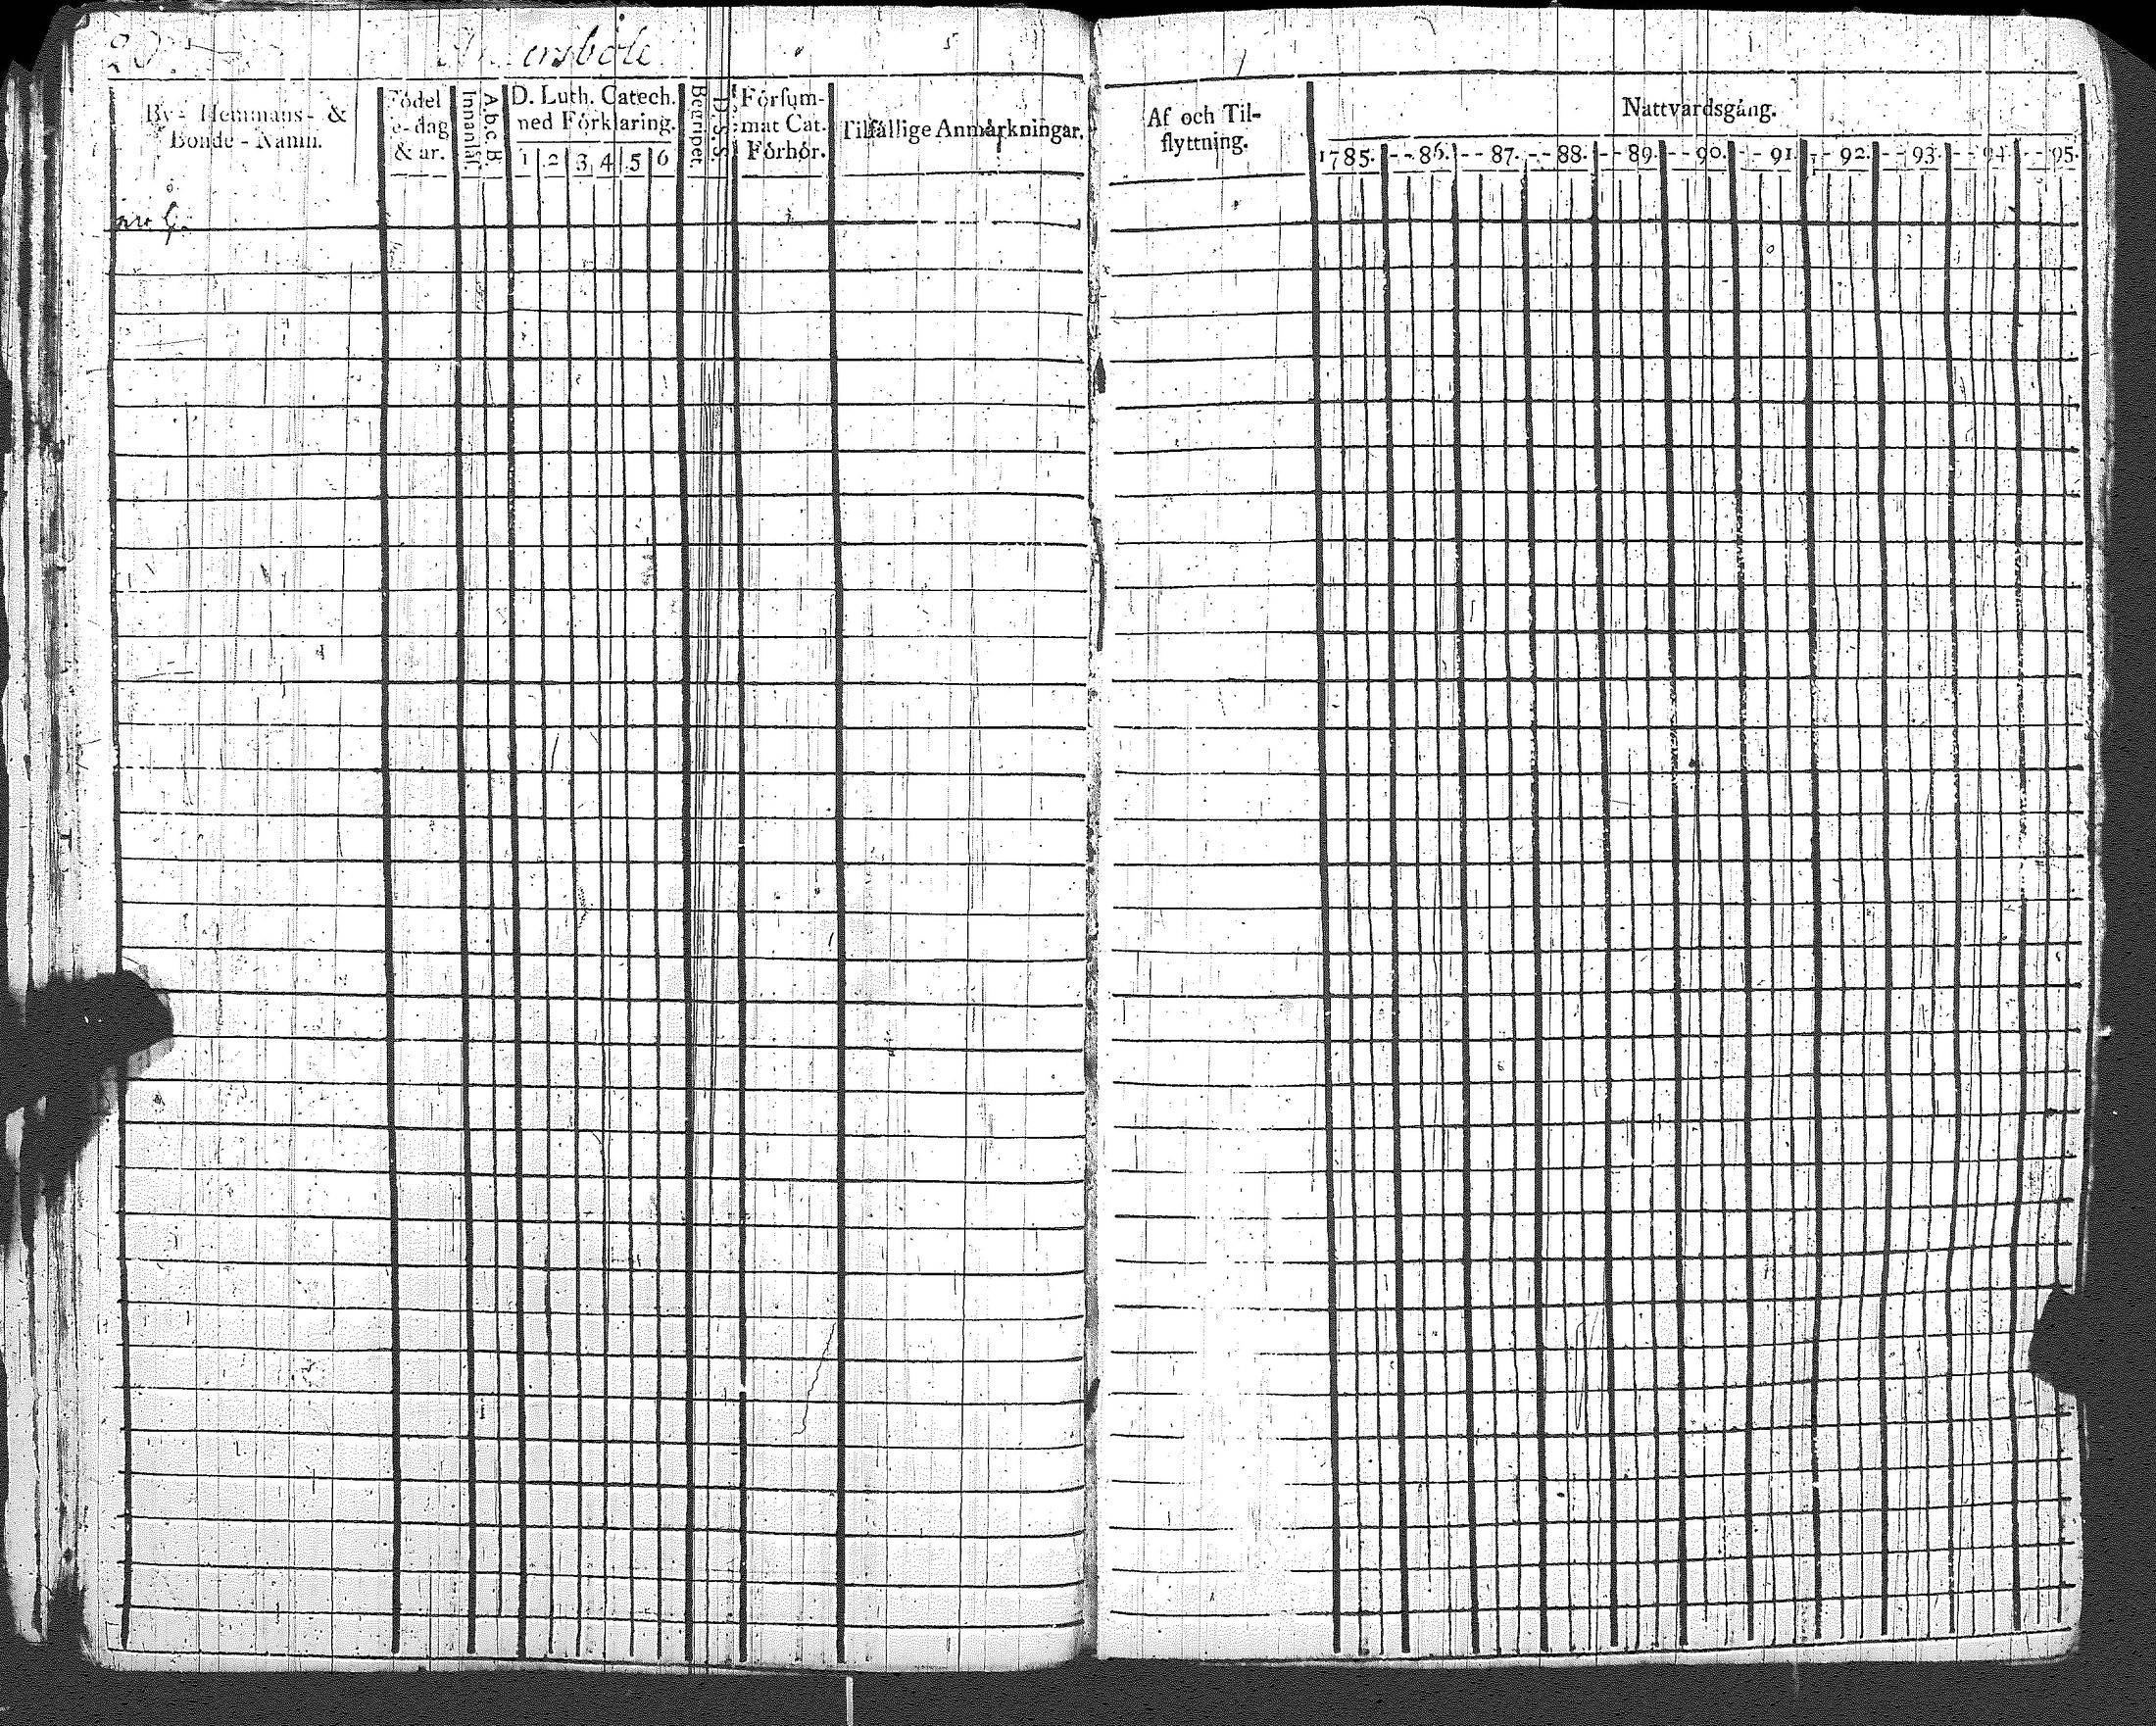 By - Hemmans - &
Bonde - Namn.
Födel
e-dag
& år.
Innanläs.
A.b.c.B.
D. Luth. Catech.
med Förklaring.
1 2 3 4 5 6
Begripet.
D. S. S.
Försum-
mat Cat.
Förhör.
Tilfällige Anmärkningar.
Af och Til-
flyttning.
Nattvardsgång.
1785. - - 86. - - 87. - - 88. - - 89. - - 90. - - 91. - - 92. - - 93. - - 94. - - 95.